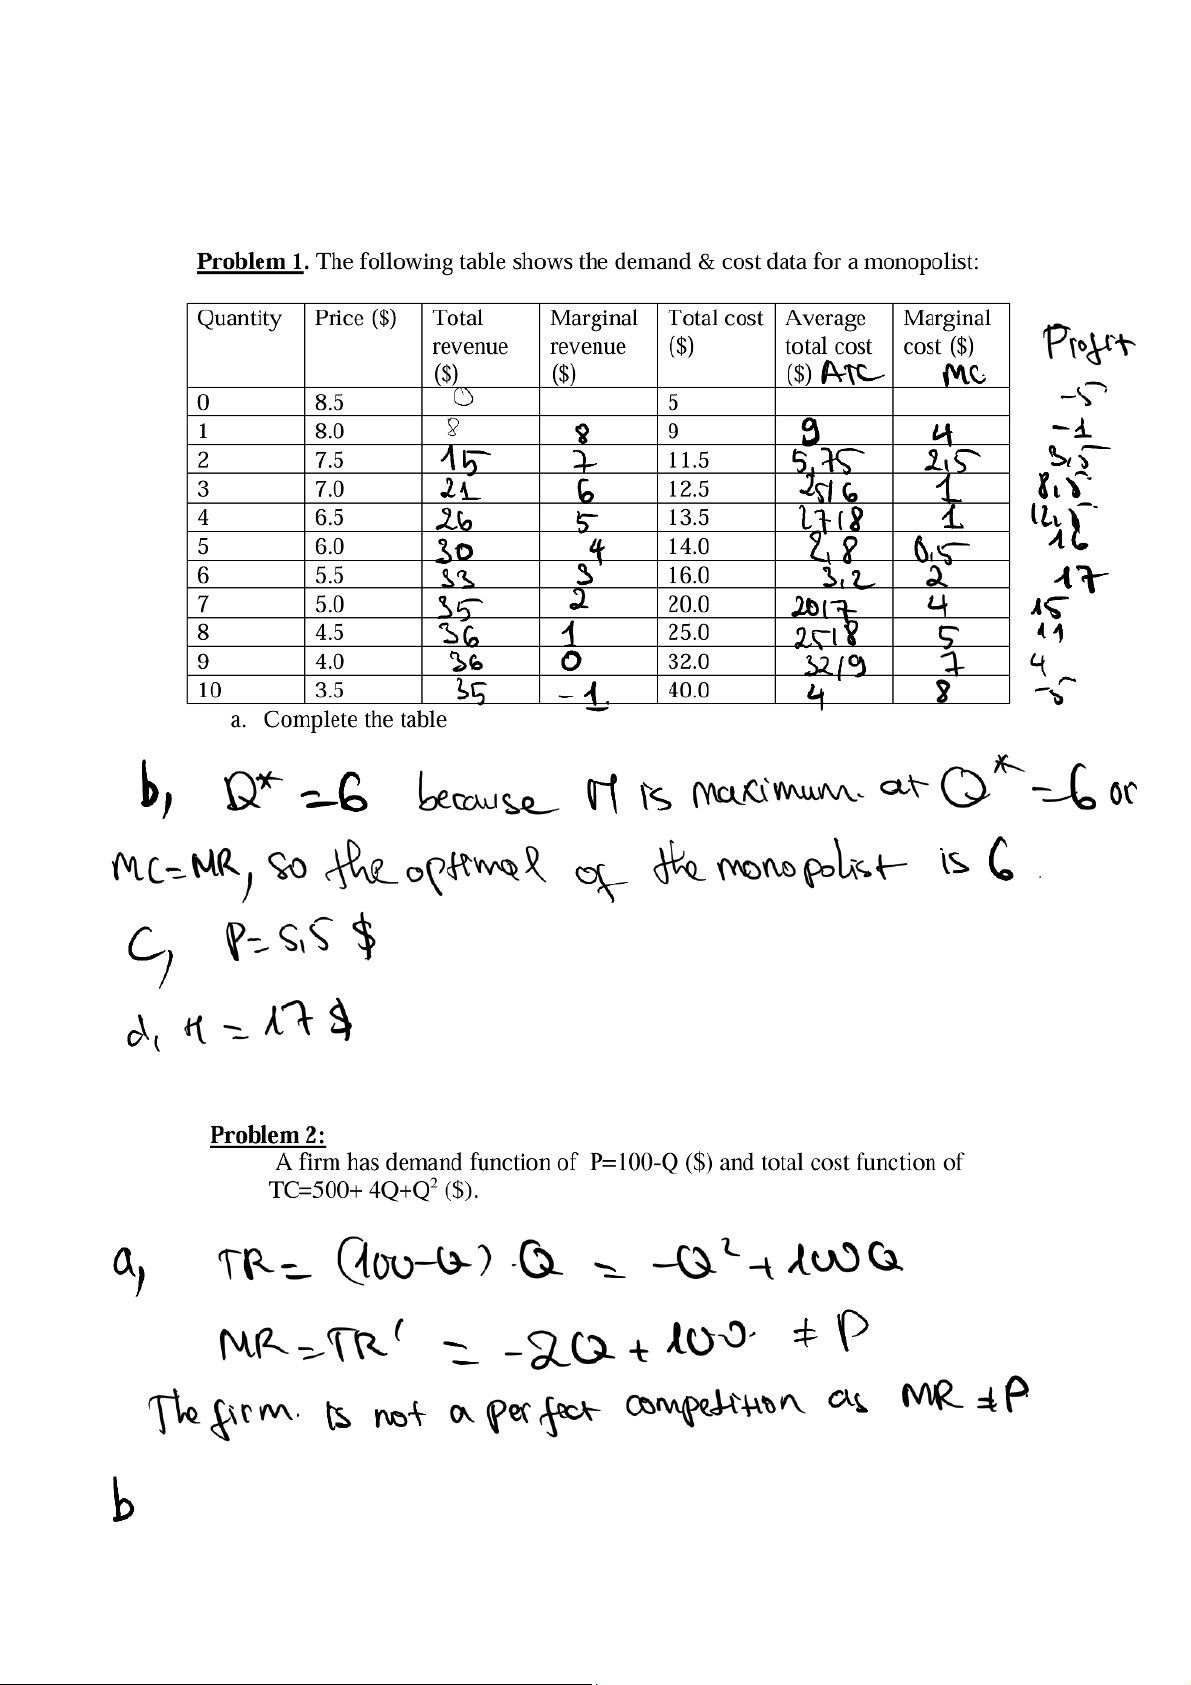 Problem 1. The following table shows the demand & cost data for a monopolist:
Quantity Price ($) Total revenue ($) Marginal revenue ($) Total cost ($) Average total cost ($) ATC Marginal cost ($) MC Profit
0 8.5 0 5 -5
1 8.0 8 8 9 9 4 -1
2 7.5 15 7 11.5 5,75 2,5 3,5
3 7.0 21 6 12.5 25/6 1 8,5
4 6.5 26 5 13.5 27/8 1 12,5
5 6.0 30 4 14.0 2,8 0,5 16
6 5.5 33 3 16.0 3,2 2 17
7 5.0 35 2 20.0 20/7 4 15
8 4.5 36 1 25.0 25/8 5 11
9 4.0 36 0 32.0 32/9 7 4
10 3.5 35 -1 40.0 4 8 -5
a. Complete the table
b, Q* = 6 because π is maximum at Q* = 6 or
MC=MR, so the optimal of the monopolist is 6.
C, P= 5,5 $
d, π = 17 $
Problem 2:
A firm has demand function of P=100-Q ($) and total cost function of
TC=500+ 4Q+Q² ($).
a, TR = (100-Q).Q = -Q² + 100Q
MR = TR' = -2Q + 100 ≠ P
The firm is not a perfect competition as MR ≠ P
b